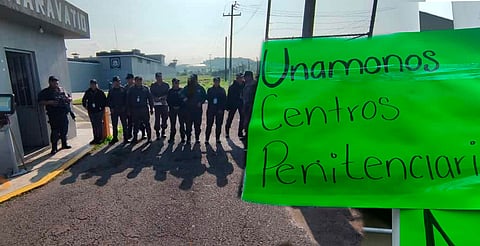 MARAVATIO
Unamonos
Centros
Penitenciari